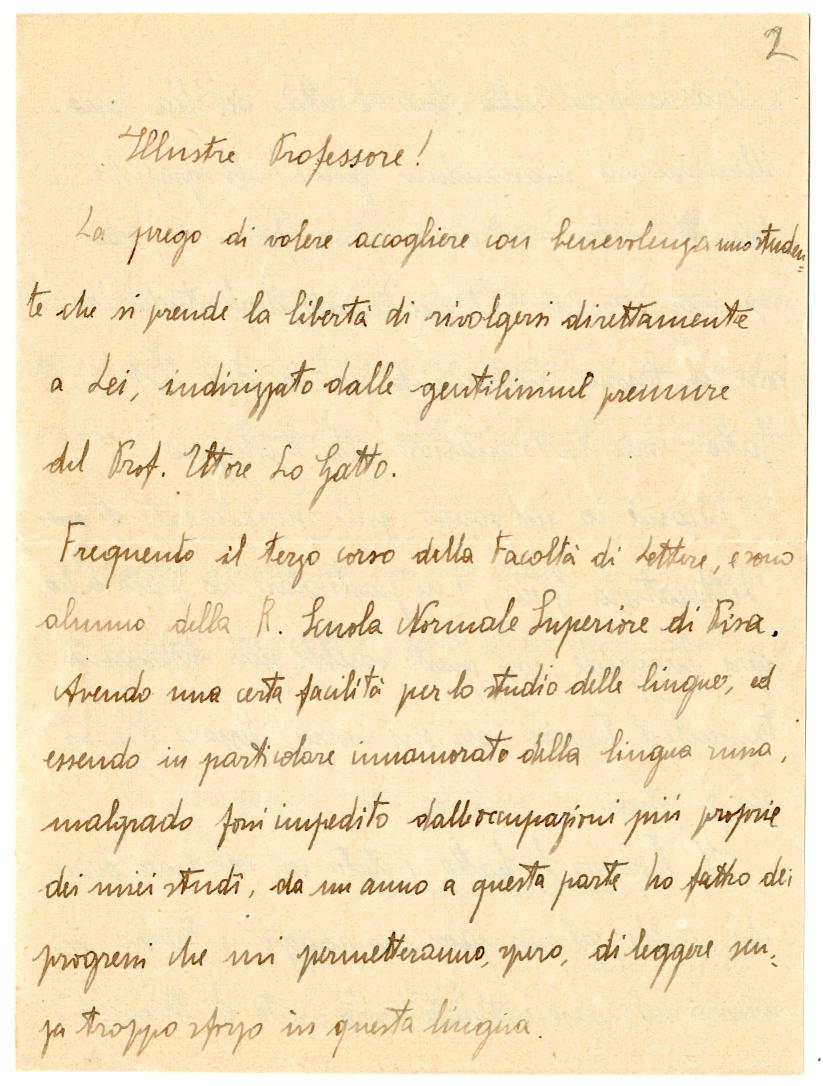 2
Illustre Professore!
La prego di volere accogliere con benevolenza uno studen=
te che si prende la libertà di rivolgersi direttamente
a Lei, indirizzato dalle gentilissime premure
del Prof. Ettore Lo Gatto.
Frequento il terzo corso della Facoltà di Lettere, e sono
alunno della R. Scuola Normale Superiore di Pisa.
Avendo una certa facilità per lo studio delle lingue, ed
essendo in particolare innamorato della lingua russa,
malgrado fossi impedito dalle occupazioni più proprie
dei miei studî, da un anno a questa parte ho fatto dei
progressi che mi permetteranno, spero, di leggere sen=
za troppo sforzo in questa lingua.